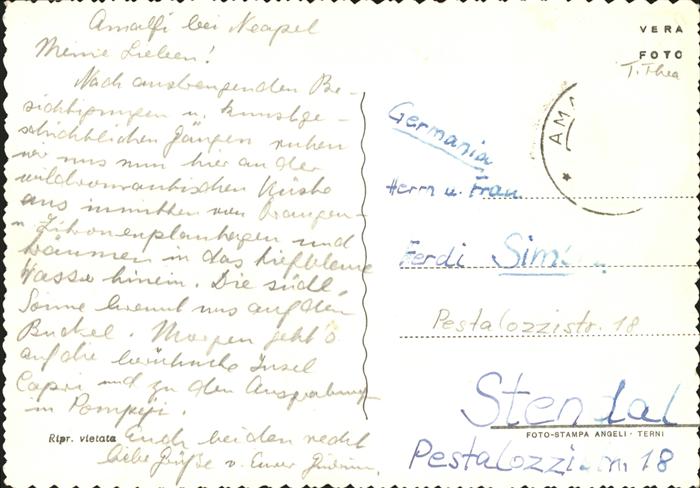 Amalfi bei Neapel
Meine Lieben!
Nach anstrengenden Be-
sichtigungen u. kunstge-
schichtlichen Gängen ruhen
wir uns nun hier an der
wildromantischen Küste
aus inmitten von Orangen-
u. Zitronenplantagen und
träumen in das tiefblaue
Wasser hinein. Die südl.
Sonne brennt uns auf den
Buckel. Morgen geht's
auf die berühmte Insel
Capri und zu den Ausgrabungen
in Pompeji.
Euch beiden recht
liebe Grüße v. Eurer
Ripr. vietata
VERA
FOTO
T. Thea
AM
Germania
Herrn u. Frau
Ferdi Sim
Pestalozzistr. 18
Stendal
FOTO-STAMPA ANGELI - TERNI
18